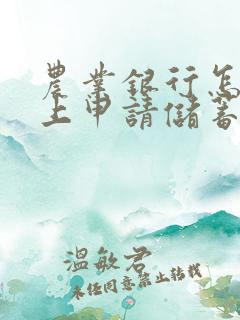 農業銀行怎
上申請儲蓄
溫敏君
未經同意禁止轉載